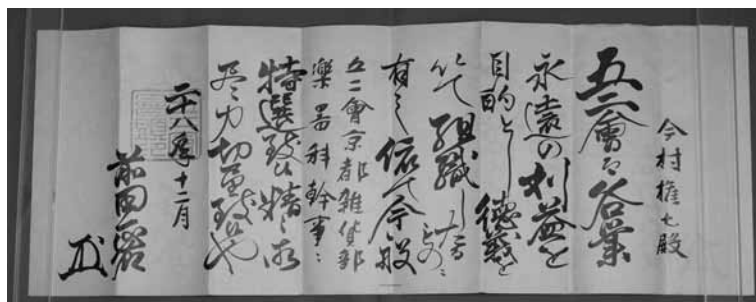 今村権七殿
五二會ハ各業
永遠の利益を
目的とし徳義を
以て組織したるものニ
有之依て今般
五二會京都雑貨部
楽器科幹事ニ
特選致候精々御
尽力切望致候也
二十八年十二月
前田正名